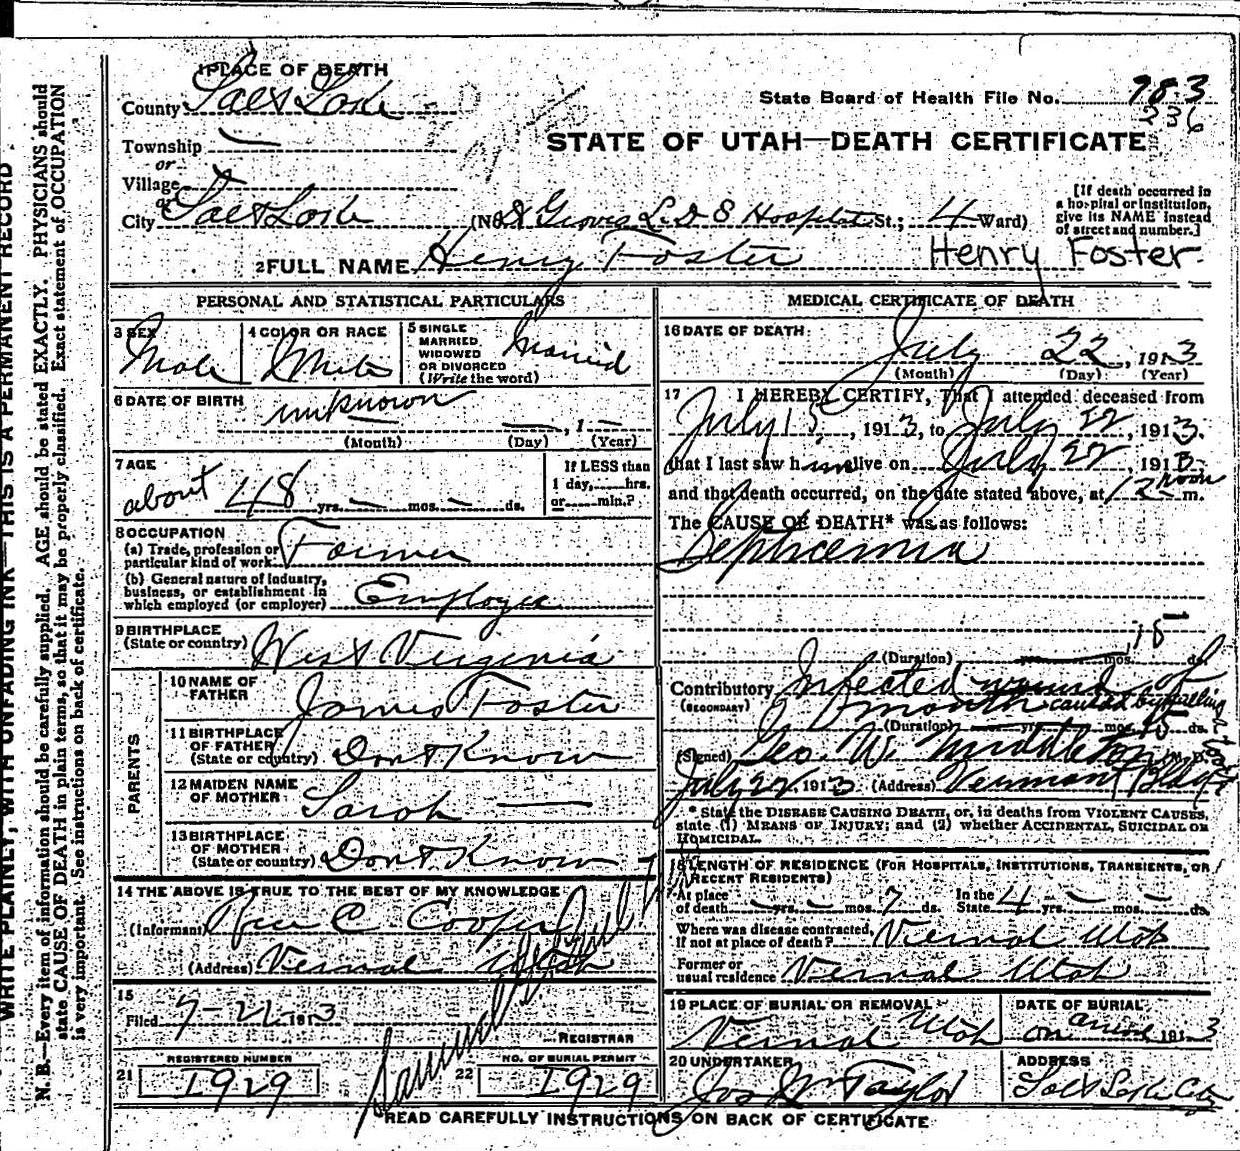 1 PLACE OF DEATH
County Salt Lake
State Board of Health File No. 983
236
STATE OF UTAH—DEATH CERTIFICATE
Township —
or
Village
or
City Salt Lake (No. Groves L. D S Hospital St.; 4 Ward)
[If death occurred in a hospital or institution, give its NAME instead of street and number.]
2 FULL NAME Henry Foster Henry Foster.
PERSONAL AND STATISTICAL PARTICULARS
3 SEX Male
4 COLOR OR RACE White
5 SINGLE MARRIED WIDOWED OR DIVORCED (Write the word) Married
6 DATE OF BIRTH unknown —, 1 —
(Month) (Day) (Year)
7 AGE about 48 yrs. — mos. — ds.
If LESS than 1 day, hrs. or min.?
8 OCCUPATION
(a) Trade, profession or particular kind of work Farmer
(b) General nature of industry, business, or establishment in which employed (or employer) Employee
9 BIRTHPLACE (State or country) West Virginia
PARENTS
10 NAME OF FATHER James Foster
11 BIRTHPLACE OF FATHER (State or country) Dont Know
12 MAIDEN NAME OF MOTHER Sarah —
13 BIRTHPLACE OF MOTHER (State or country) Dont Know
14 THE ABOVE IS TRUE TO THE BEST OF MY KNOWLEDGE
(Informant) C Cooper
(Address) Vernal Utah
15
Filed 7-22 1913
REGISTRAR
REGISTERED NUMBER
21 1929
NO. OF BURIAL PERMIT
22 1929
MEDICAL CERTIFICATE OF DEATH
16 DATE OF DEATH: July 22, 1913
(Month) (Day) (Year)
17 I HEREBY CERTIFY, That I attended deceased from
July 15, 1913, to July 22, 1913.
that I last saw him alive on July 22, 1913,
and that death occurred, on the date stated above, at 12 noon m.
The CAUSE OF DEATH* was as follows:
Septicemia
(Duration) yrs. mos. 15 ds.
Contributory Infected wound of
(SECONDARY) mouth caused by pulling a tooth
(Duration) yrs. mos. 15 ds.
(Signed) Geo. W. Middleton, M. D.
July 22, 1913 (Address) Vermont Bldg
* State the DISEASE CAUSING DEATH, or, in deaths from VIOLENT CAUSES, state (1) MEANS OF INJURY; and (2) whether ACCIDENTAL, SUICIDAL OR HOMICIDAL.
18 LENGTH OF RESIDENCE (FOR HOSPITALS, INSTITUTIONS, TRANSIENTS, OR RECENT RESIDENTS)
At place of death — yrs. — mos. 7 ds. In the State 4 yrs. — mos. — ds.
Where was disease contracted, if not at place of death? Vernal Utah
Former or usual residence Vernal Utah
19 PLACE OF BURIAL OR REMOVAL Vernal Utah
DATE OF BURIAL on 1913
20 UNDERTAKER Jos Wm Taylor
ADDRESS Salt Lake City
READ CAREFULLY INSTRUCTIONS ON BACK OF CERTIFICATE
WRITE PLAINLY, WITH UNFADING INK—THIS IS A PERMANENT RECORD
N. B.—Every item of information should be carefully supplied. AGE should be stated EXACTLY. PHYSICIANS should
state CAUSE OF DEATH in plain terms, so that it may be properly classified. Exact statement of OCCUPATION
is very important. See instructions on back of certificate.